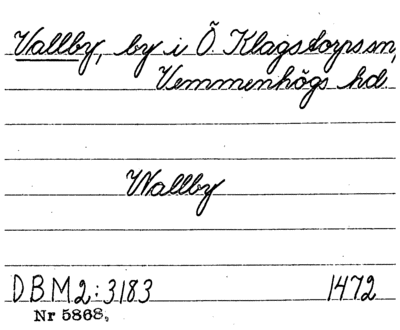 Vallby, by i Ö. Klagstorps sn,
Vemmenhögs hd.
Wallby
DBM2:3183 1472
Nr 5868,